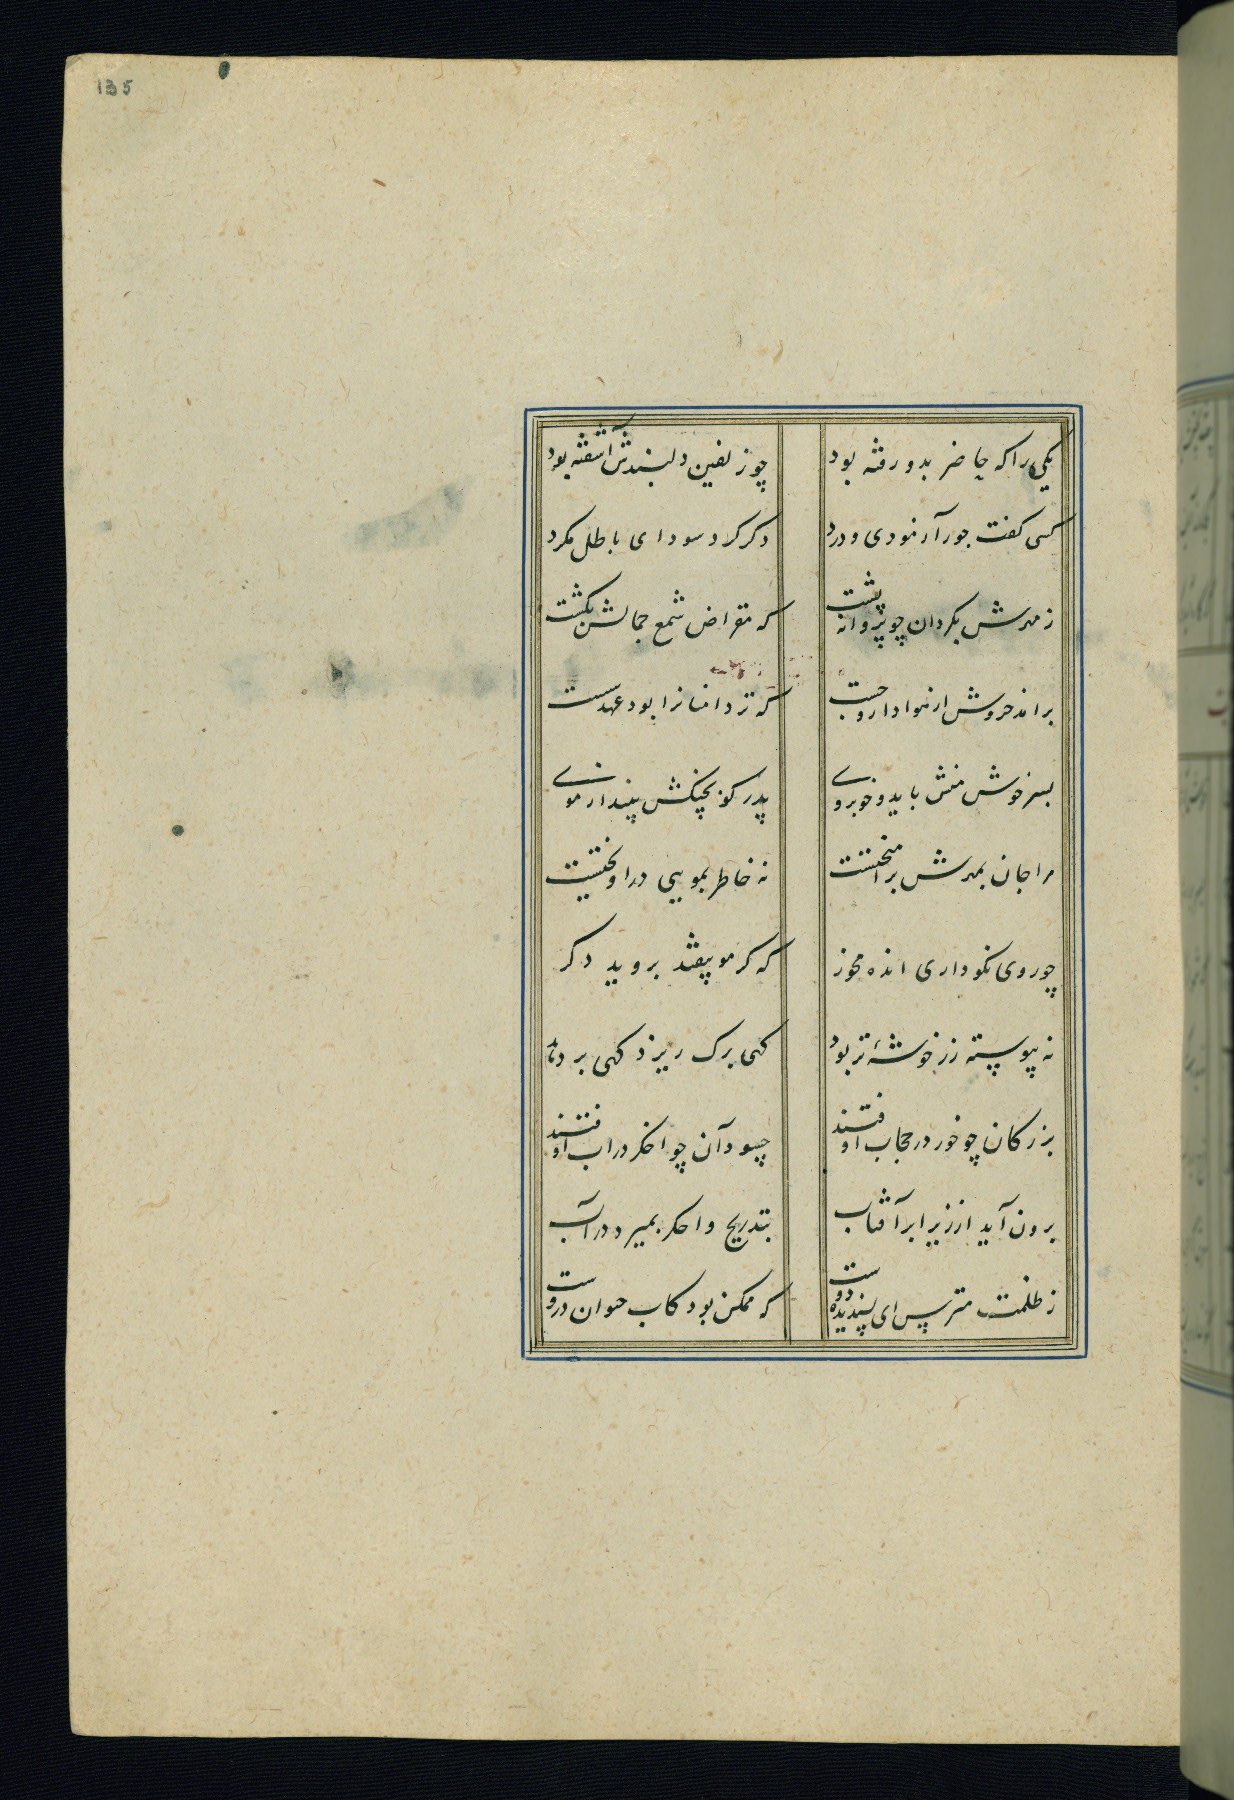 135
یکی را که خاطر بدو رفته بود چو زلفین دلبندش آشفته بود
کسی کفت جور آزمودی و درد دکر کرد سودای باطل مکرد
ز مهرش بکردان چو پروانه پشت که مقراض شمع جمالش بکشت
برامد خروش از هوادار چست که تردامنانرا بود عهد سست
پسر خوش منش باید و خوبروے پدر کو بجهلش بینداز موے
مرا جان بمهرش برامیختست نه خاطر بمویی دراویختیست
چو روی نکو داری انده مخور که کر مو بیفتد بروید دکر
نه پیوسته رز خوشهٔ تر بود کهی برک ریزد کهی بر دهد
بزرکان چو خور در حجاب اوفتند حسودان چو اخکر در اب اوفتند
برون آید از زیر ابر آفتاب بتدریج و اخکر بمیرد در آب
ز ظلمت مترس ای پسندیده دوست که ممکن بود کاب حیوان دروست